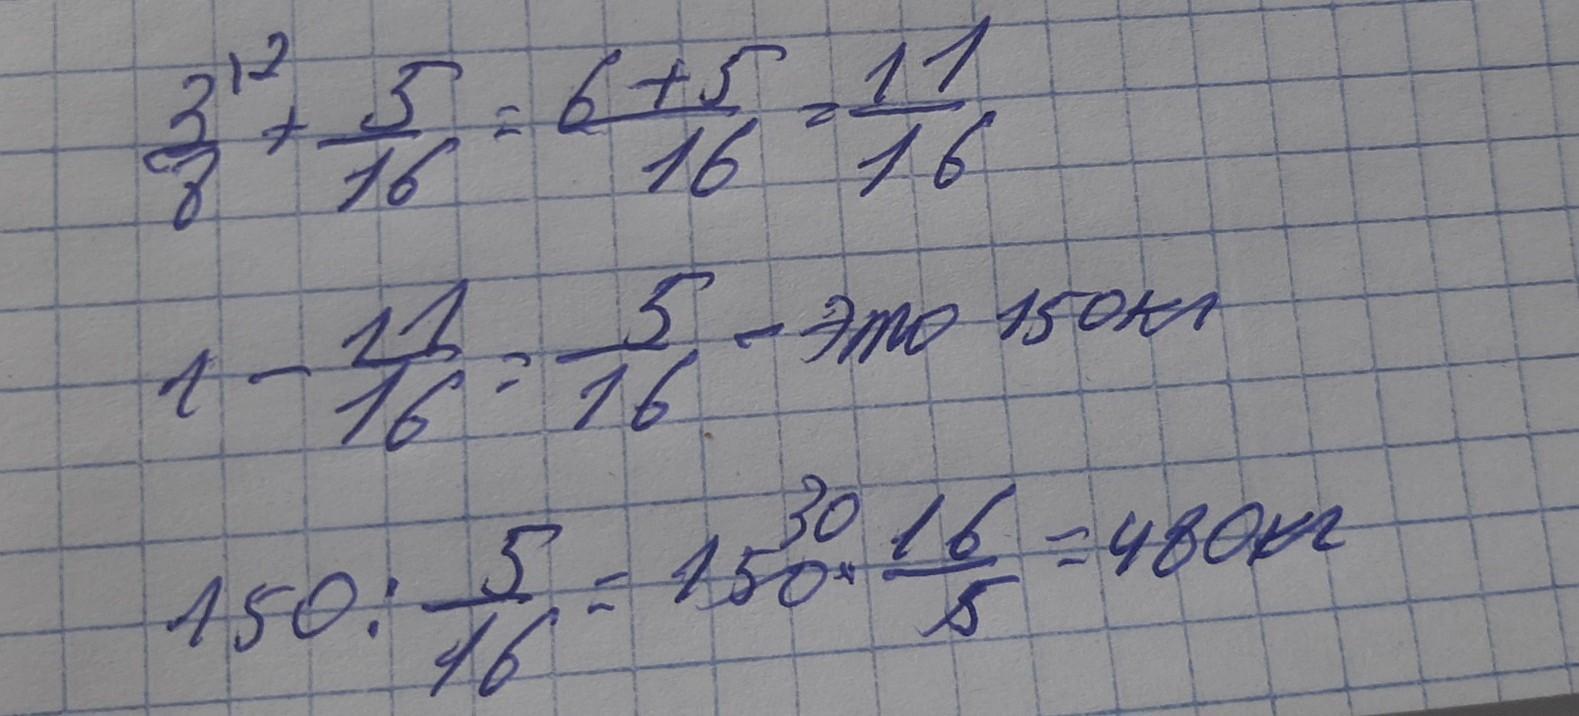 3/8 |2 + 5/16 = 6+5/16 = 11/16
1 - 11/16 = 5/16 - это 150кг
150 : 5/16 = 150 30 · 16/5 = 480кг